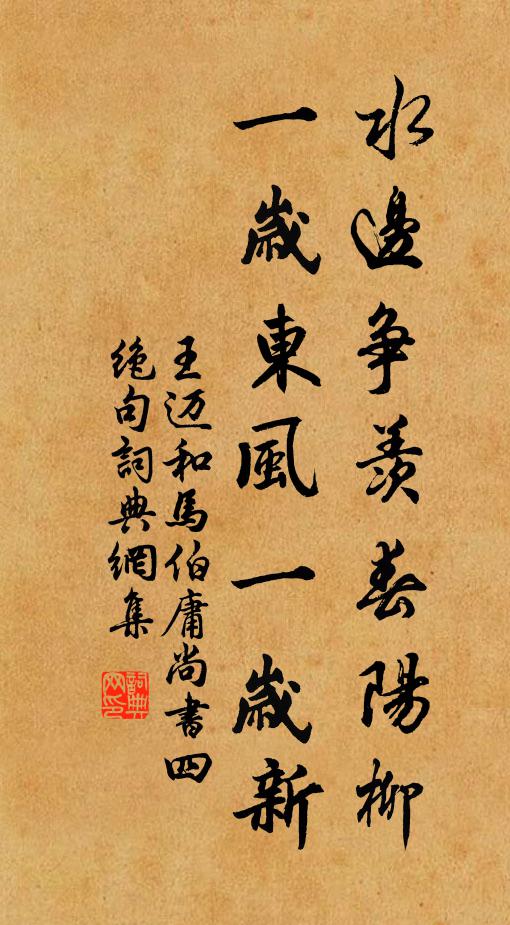 水邊爭羨春陽柳
一歲東風一歲新
王迈和馬伯庸尚書四
絶句詞典網集
詞典网印